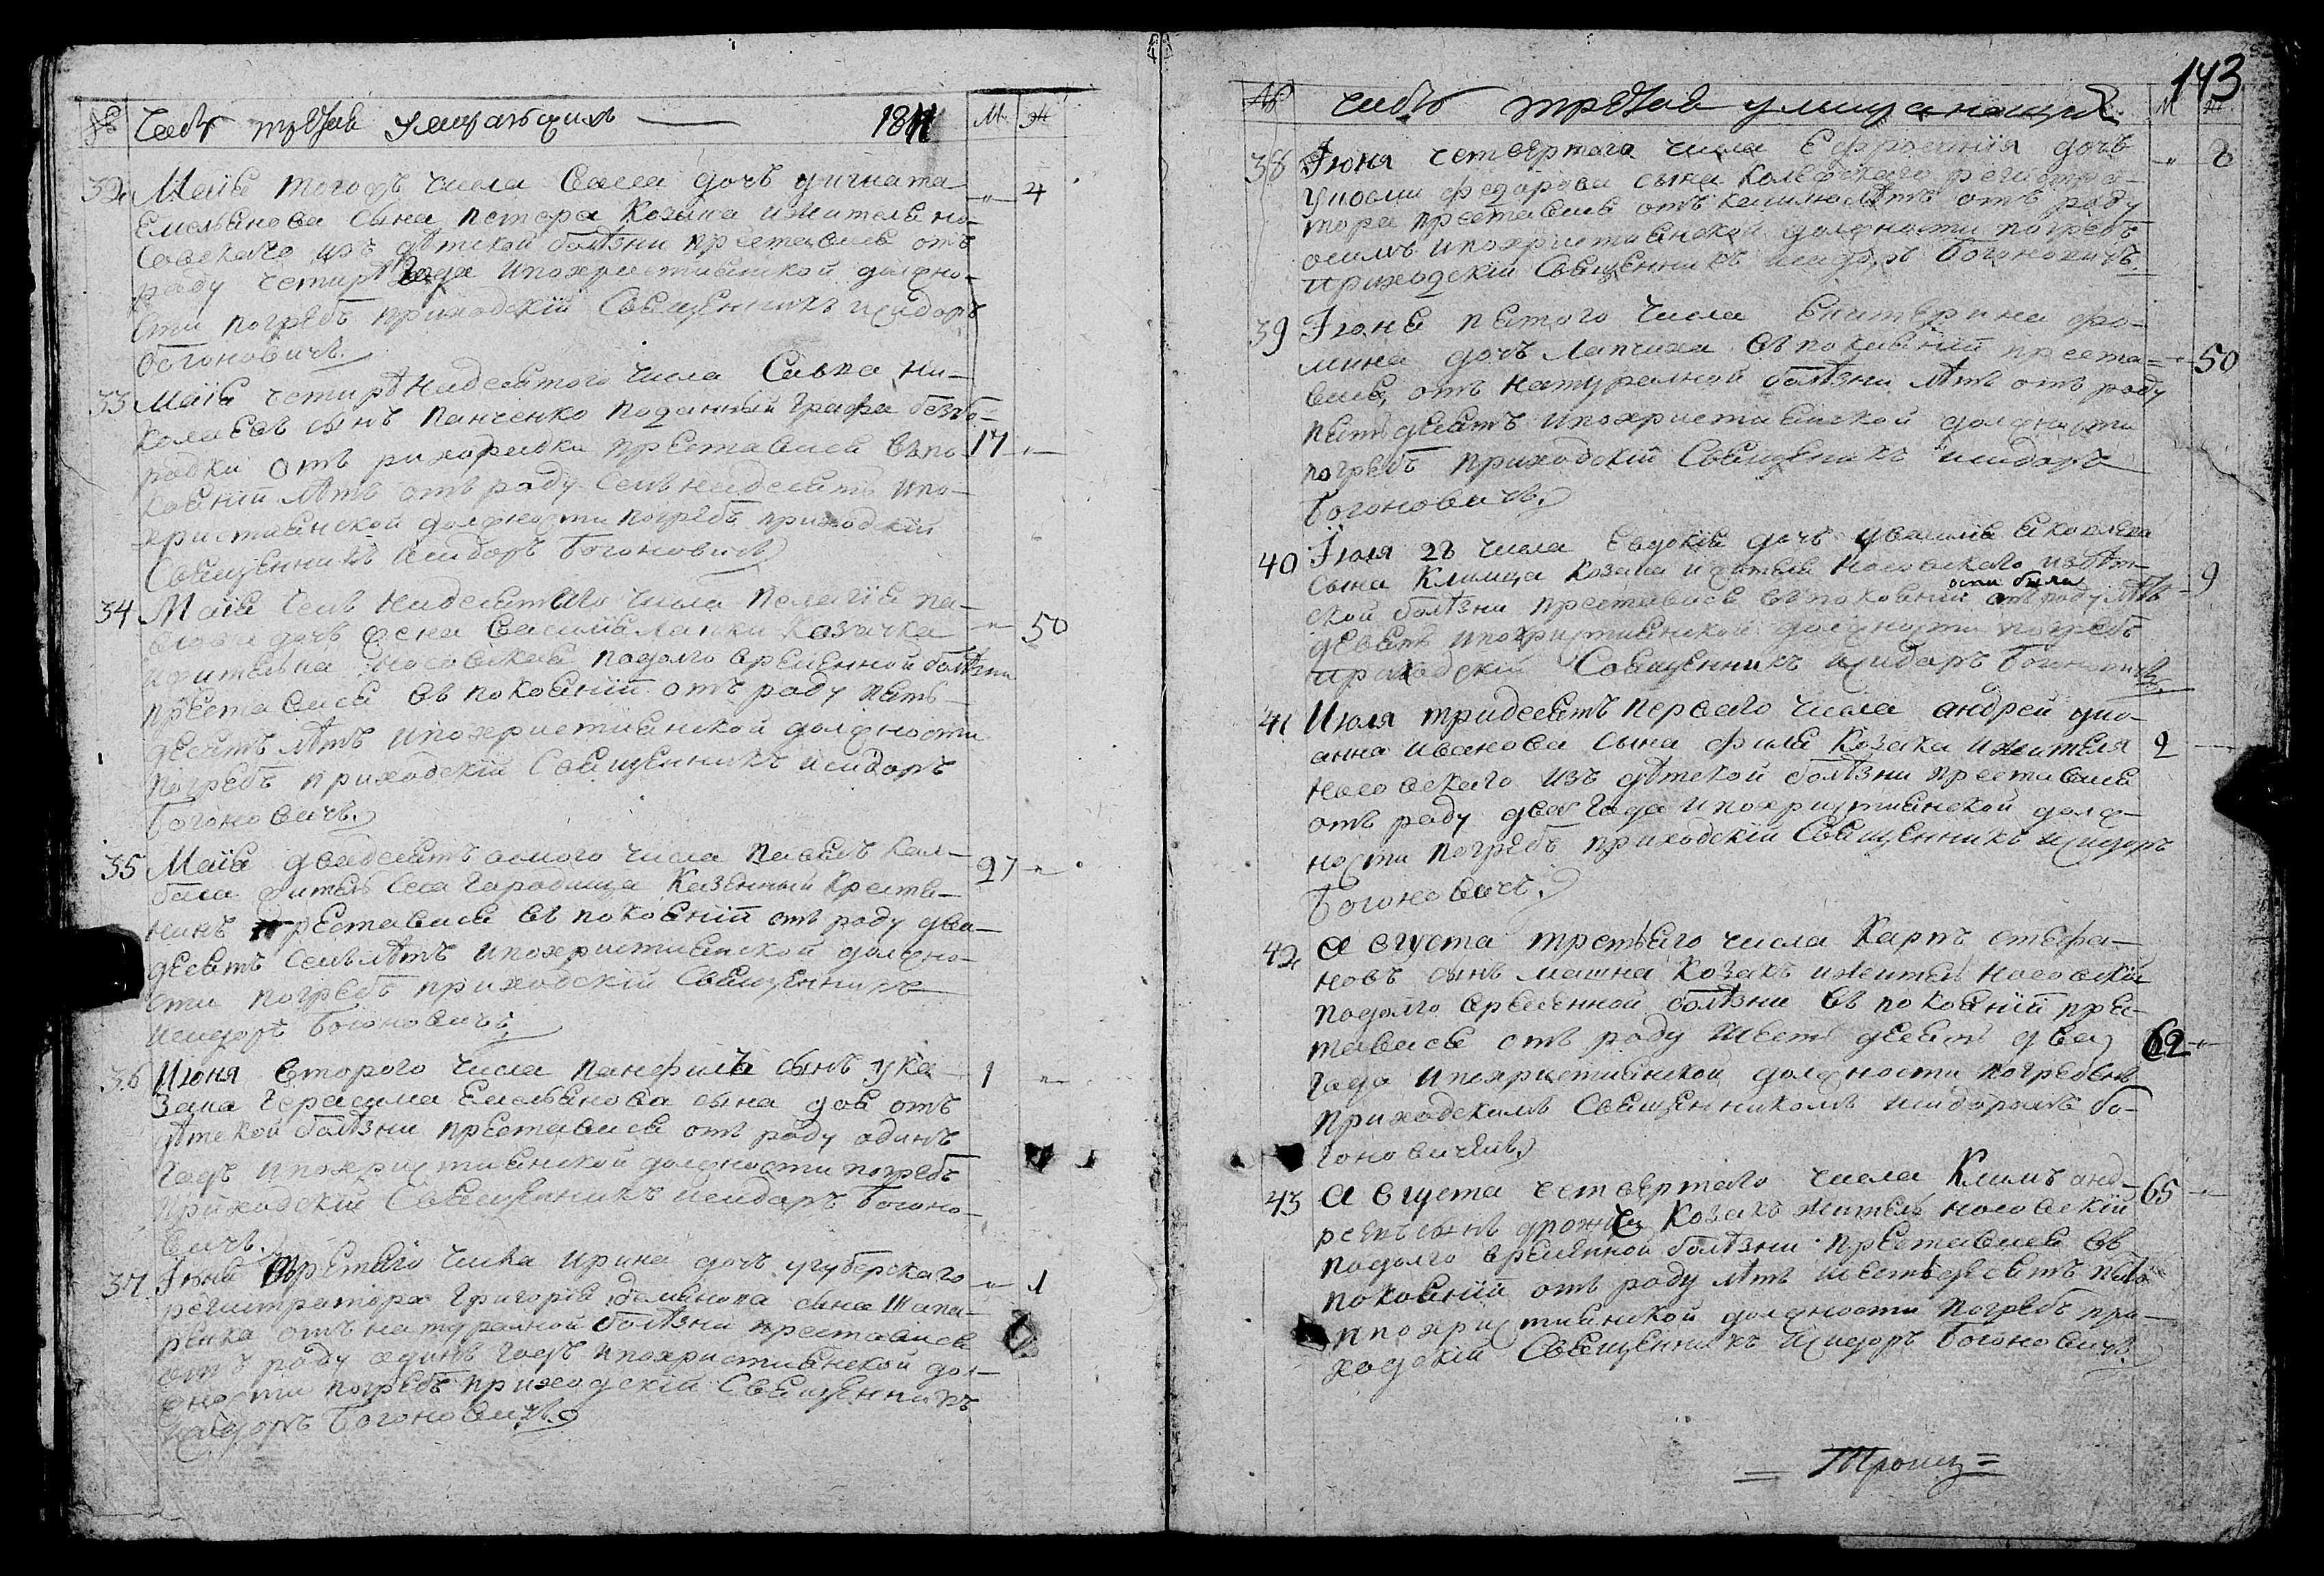 143
№ Часть третья умирающихъ 1811 М. Ж
32 Маія тогожъ числа Васса дочъ уигната „ 4
Емельянова сына петера Козака ижителя но-
совскаго изъ дѣтской болѣзни преставися отъ
роду четири года ипохристиянской должно-
сти погребъ приходскій Священникъ исидоръ
богоновичъ.
33 Маія четирѣнадесятого числа Савка ни-
колаевъ сынъ панченко поданный графа безбо-
родки отъ преставися въпо- 17 „
коянїи лѣтъ отъ роду семънадесятъ ипо-
християнской должности погребъ приходскій
Священникъ исидоръ богоновичъ
34 Маія семънадесятого числа пелагія па-
влова дочъ жена василія лапки Козачка „ 50
жителка носовская подолго временной болѣзни
преставися въ покоянїи отъ роду пять-
десятъ лѣтъ ипохристиянской должности
погребъ приходскій Священникъ исидоръ
богоновичъ.
35 Маія двадесятъ осмого числа павелъ кал- 27 „
бала житель села Городища Казенный крестя-
нинъ преставися въ покоянїи отъ роду два-
десятъ семъ лѣтъ ипохристиянской должно-
сти погребъ приходскій Священникъ
исидоръ богоновичъ.
36 Июня второго числа панфилъ сынъ ука- 1 „
зака герасима Емельянова сына отъ
дѣтской болѣзни преставися отъ роду одинъ
годъ ипохристиянской должности погребъ
приходскій Священникъ исидоръ богоно-
вичъ.
37 Іюня третяго числа ирина дочъ угуберскаго „ 1
регистратора григорія сына шапа-
ренка отъ натуралной болѣзни преставися
отъ роду одинъ годъ ипохристиянской дол-
жности погребъ приходскій Священникъ
исидоръ богоновичъ.
№ часть третяя умирающихъ М Ж
38 Іюня четвертаго числа Ефросинія дочъ „ 8
федорова сына колежскаго регистра-
тора преставися отъ кашлю лѣтъ отъ роду
осмъ ипохристиянской должности погребъ
приходскій Священникъ исидоръ богоновичъ.
39 Іюня пятого числа Екатерина фо-
мина дочъ лапчиха въпокоянїи преста- „ 50
вися, отъ натуралной болѣзни лѣтъ отъ роду
пятъдесятъ ипохристиянской должности
погребъ приходскій Священникъ исидоръ
богоновичъ.
40 Іюля 28 числа Евдокія дочъ увасилія яковлева
сына климца Козака ижителя Носовскаго издѣт- „ 9
ской болѣзни преставися въпокоянїи отъ роду лѣтъ
девять ипохристиянской должности погребъ
приходскій Священникъ исидоръ богоновичъ.
41 Июля тридесятъ перваго числа андрей уио-
анна иванова сына фила Козака ижителя 2 „
носовскаго изъ дѣтской болѣзни преставися
отъ роду два года ипохристиянской долж-
ности погребъ приходскій Священникъ исидоръ
богоновичъ.
42 Августа третяго числа Карпъ стефа-
новъ сынъ машна Козакъ ижитель носовскїй
подолго временной болѣзни въ покоянїи прес-
тавися отъ роду шестъ десятъ два 62 „
года ипохристиянской должности погребенъ
приходскимъ Священникомъ исидоромъ бо-
гоновичемъ
43 Августа четвертаго числа Климъ анд- 65 „
реевъ сынъ Козакъ житель носовскїй
подолго временной болѣзни преставися въ
покоянїи отъ роду лѣтъ шестъдесятъ пять
ипохристиянской должности погребъ при-
ходскій Священникъ исидоръ богоновичъ.